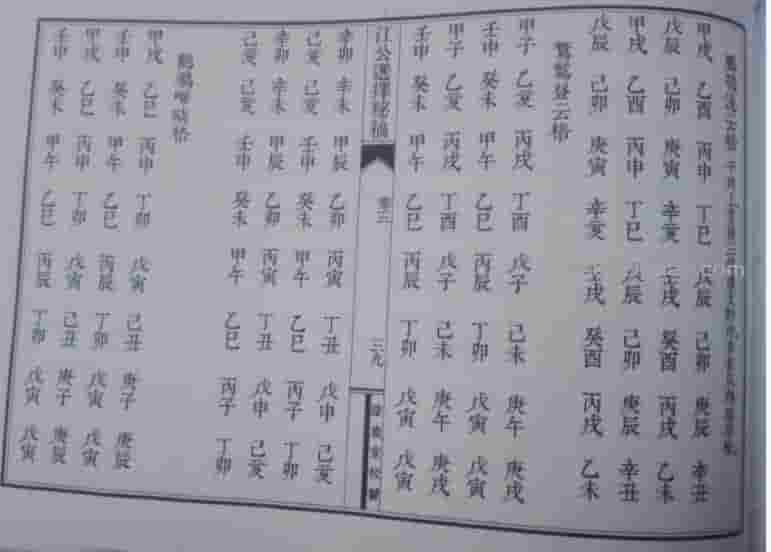 甲戌 乙酉 丙申 丁巳 戊辰 己卯 庚辰 辛丑
戊辰 己卯 庚寅 辛亥 壬戌 癸酉 丙戌 乙未
甲戌 乙酉 丙申 丁巳 戊辰 己卯 庚辰 辛丑
戊辰 己卯 庚寅 辛亥 壬戌 癸酉 丙戌 乙未
登云格
甲子 乙亥 丙戌 丁酉 戊子 己未 庚午 庚戌
壬申 癸未 甲午 乙巳 丙辰 丁卯 戊寅 戊寅
甲子 乙亥 丙戌 丁酉 戊子 己未 庚午 庚戌
壬申 癸未 甲午 乙巳 丙辰 丁卯 戊寅 戊寅
江公選擇秘稿
卷三
三九
辛卯 辛未 甲辰 乙卯 丙寅 丁丑 戊申 己亥
己亥 己亥 壬申 癸未 甲午 乙巳 丙子 丁卯
辛卯 辛未 甲辰 乙卯 丙寅 丁丑 戊申 己亥
己亥 己亥 壬申 癸未 甲午 乙巳 丙子 丁卯
格
甲戌 乙巳 丙申 丁卯 戊寅 己丑 庚子 庚辰
壬申 癸未 甲午 乙巳 丙辰 丁卯 戊寅 戊寅
甲戌 乙巳 丙申 丁卯 戊寅 己丑 庚子 庚辰
壬申 癸未 甲午 乙巳 丙辰 丁卯 戊寅 戊寅